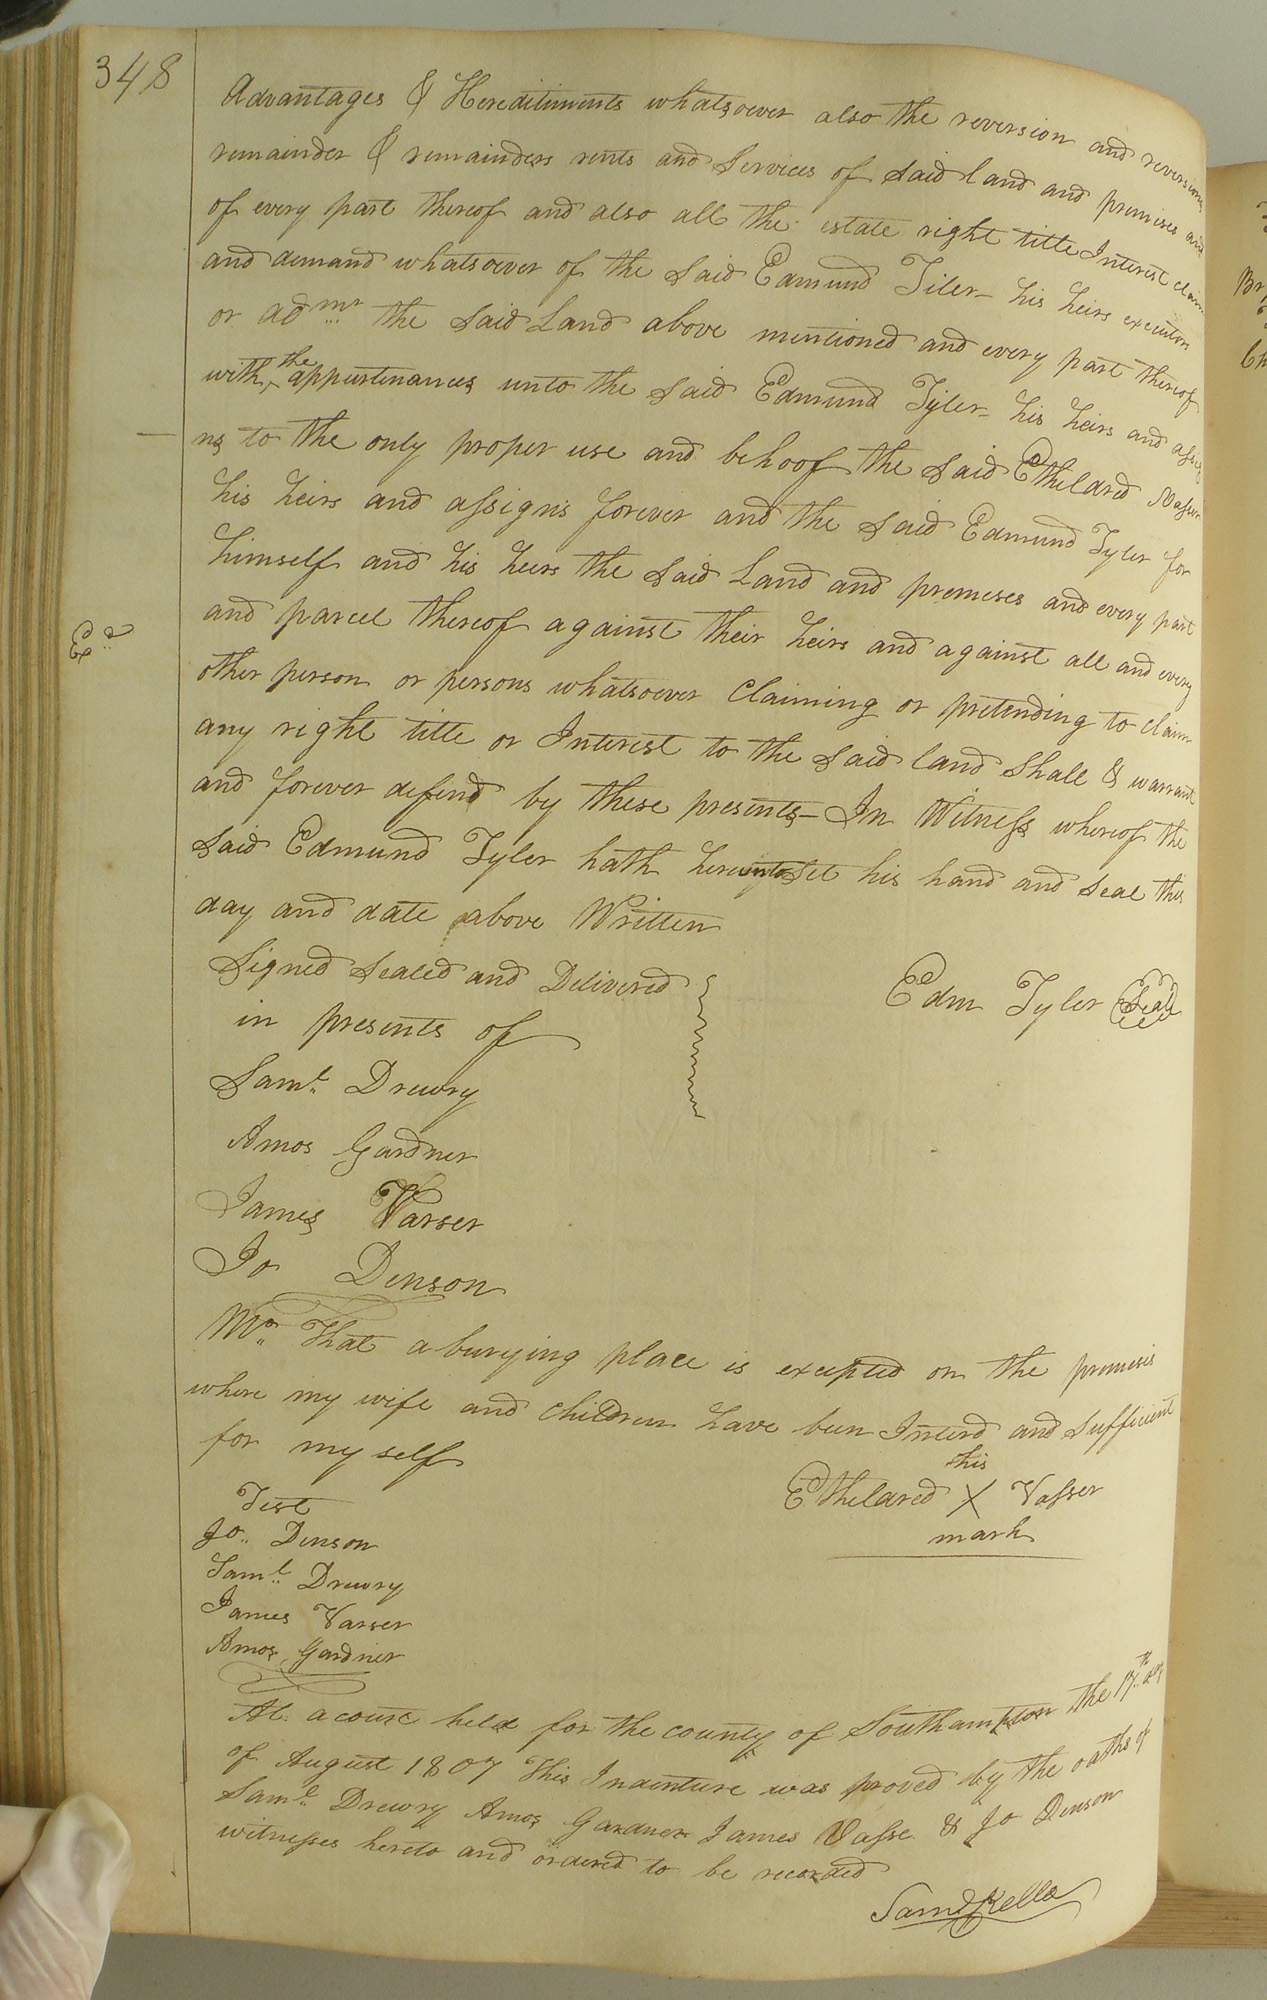 348
Advantages & Hereditiments whatsoever also the reversion and reversions
remainder & remainders rents and Services of said land and premises and
of every part thereof and also all the estate right title Interest claim
and demand whatsoever of the said Edmund Tiler his heirs executors
or adm^rs the said Land above mentioned and every part thereof
with the appurtenances unto the said Edmund Tyler his heirs and assig
ns to the only proper use and behoof the said Etheldred Vasser
his heirs and assigns forever and the said Edmund Tyler for
himself and his heirs the said Land and premeses and every part
and parcel thereof against their heirs and against all and every
Ex^d
other person or persons whatsoever Claiming or pretending to claim
any right title or Interest to the said land Shall & warrant
and forever defend by these presents - In Witness whereof the
said Edmund Tyler hath hereunto set his hand and seal this
day and date above Written
Signed Sealed and Delivered
in presents of
Edm Tyler Seal
Sam^l Drewry
Amos Gardner
James Varser
Jo Denson
M^o That a burying place is excepted on the premises
where my wife and children have been Interd and Sufficient
for my self
his
Etheldred X Vasser
mark
Test
Jo. Denson
Sam^l Drewry
James Varser
Amos Gardner
At a court held for the county of Southampton the 17^th day
of August 1807 This Indenture was proved by the oaths of
Sam^l Drewry Amos Gardner James Vasse & Jo Denson
witnesses hereto and ordered to be recorded
Sam^l Kello